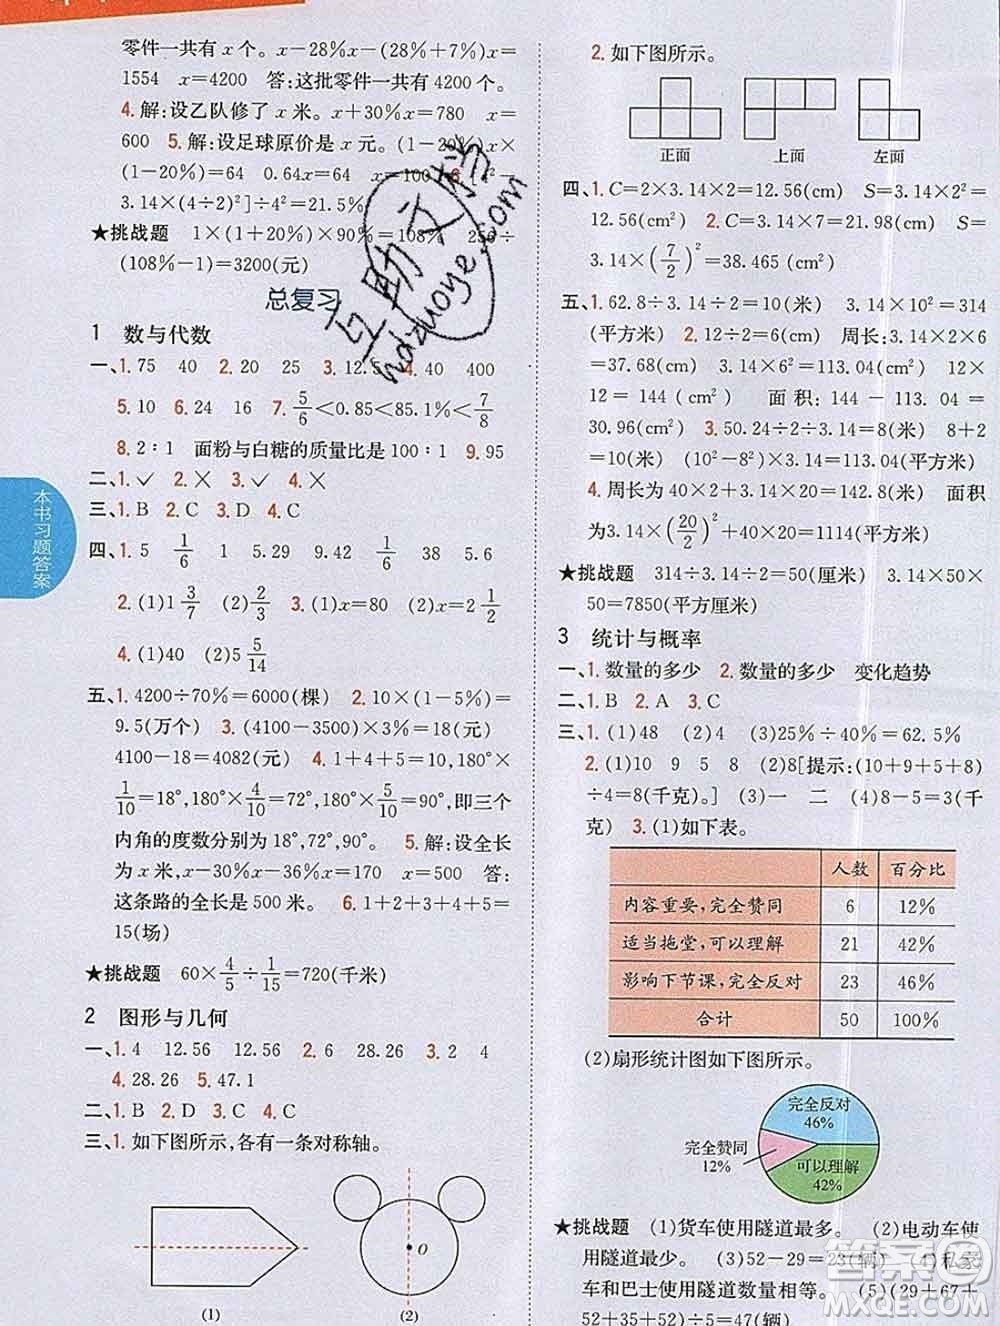 零件一共有 x 个。x－28%x－(28%＋7%)x＝
1554　x＝4200　答:这批零件一共有 4200 个。
4.解:设乙队修了 x 米。x＋30%x＝780　x＝
600　5.解:设足球原价是 x 元。(1－20%)×
(1－20%)x＝64　0.64x＝64　x＝100
3.14×(4÷2)²]÷4²＝21.5%
★挑战题　1×(1＋20%)×90%＝108%　256÷
(108%－1)＝3200(元)
总复习
1　数与代数
一、1.75　40　2.20　25　3.12.5　4.40　400
5.10　6.24　16　7.5/6＜0.85＜85.1%＜7/8
8.2∶1　面粉与白糖的质量比是 100∶1　9.95
二、1.✓　2.×　3.✓　4.×
三、1.B　2.C　3.D　4.C
四、1.5　1/6　1　5.29　9.42　1/6　38　5.6
2.(1)1 3/7　(2)2/3　3.(1)x＝80　(2)x＝2 1/2
4.(1)40　(2)5 5/14
五、1.4200÷70%＝6000(棵)　2.10×(1－5%)＝
9.5(万个)　3.(4100－3500)×3%＝18(元)
4100－18＝4082(元)　4.1＋4＋5＝10,180°×
1/10＝18°,180°×4/10＝72°,180°×5/10＝90°,即三个
内角的度数分别为 18°,72°,90°。　5.解:设全长
为 x 米。50%x－30%x－36%x＝170　x＝500　答:
这条路的全长是 500 米。　6.1＋2＋3＋4＋5＝
15(场)
★挑战题　60×4/5÷1/15＝720(千米)
2　图形与几何
一、1.4　12.56　12.56　2.6　28.26　3.2　4
4.28.26　5.47.1
二、1.B　2.D　3.C　4.C
三、1.如下图所示,各有一条对称轴。
O
(1)　(2)
2.如下图所示。
正面　上面　左面
四、1.C＝2×3.14×2＝12.56(cm)　S＝3.14×2²＝
12.56(cm²)　2.C＝3.14×7＝21.98(cm)　S＝
3.14×(7/2)²＝38.465(cm²)
五、1.62.8÷3.14÷2＝10(米)　3.14×10²＝314
(平方米)　2.12÷2＝6(cm)　周长:3.14×2×6
＝37.68(cm)　3.14×6²＝113.04(cm²)　12×
12＝144(cm²)　面积:144－113.04＝
30.96(cm²)　3.50.24÷3.14÷2＝8(cm)　8＋2＝
10(cm)　(10²－8²)×3.14＝113.04(cm²)
4.周长为 40×2＋3.14×20＝142.8(米)　面积
为3.14×(20/2)²＋40×20＝1114(平方米)
★挑战题　314÷3.14÷2＝50(厘米)　3.14×50×
50＝7850(平方厘米)
3　统计与概率
一、1.数量的多少　2.数量的多少　变化趋势
二、1.B　2.A　3.C
三、1.(1)48　(2)4　(3)25%÷40%＝62.5%
2.(1)10　9　5　8　(2)8[提示:(10＋9＋5＋8)
÷4＝8(千克)。]　(3)一　二　(4)8－5＝3(千
克)　3.(1)如下表。
人数　百分比
内容重要,完全赞同　6　12%
适当拖堂,可以理解　21　42%
影响下节课,完全反对　23　46%
合计　50　100%
(2)扇形统计图如下图所示。
完全反对
46%
完全赞同
12%
可以理解
42%
★挑战题　(1)货车使用隧道最多。　(2)电动车使
用隧道最少。　(3)52－29＝23(辆)　(4)私家
车和巴士使用隧道数量相等。　(5)(29＋67＋
52＋35＋52)÷5＝47(辆)
本书习题答案
互助文学
hdzuoye.com
答案圈
MXQE.COM